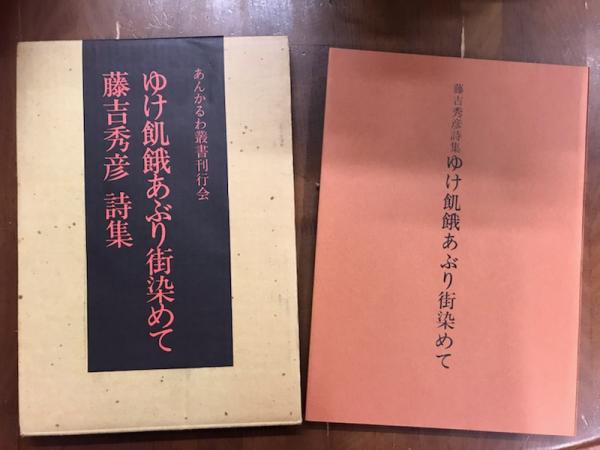 あんかるわ叢書刊行会
ゆけ飢餓あぶり街染めて
藤吉秀彦 詩集
藤吉秀彦詩集
ゆけ飢餓あぶり街染めて